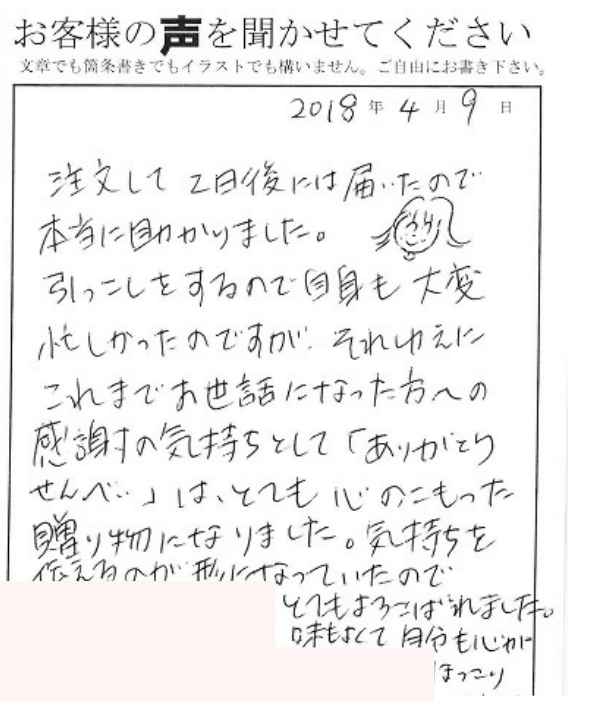 お客様の声を聞かせてください
文章でも箇条書きでもイラストでも構いません。ご自由にお書き下さい。
2018年4月9日
注文して2日後には届いたので
本当に助かりました。
引っこしをするので自身も大変
忙しかったのですが、それゆえに
これまでお世話になった方への
感謝の気持ちとして「ありがとう
せんべい」は、とても心のこもった
贈り物になりました。気持ちを
伝えるのが形になっていたので
とてもよろこばれました。
味もよくて自分も心が
ほっこり